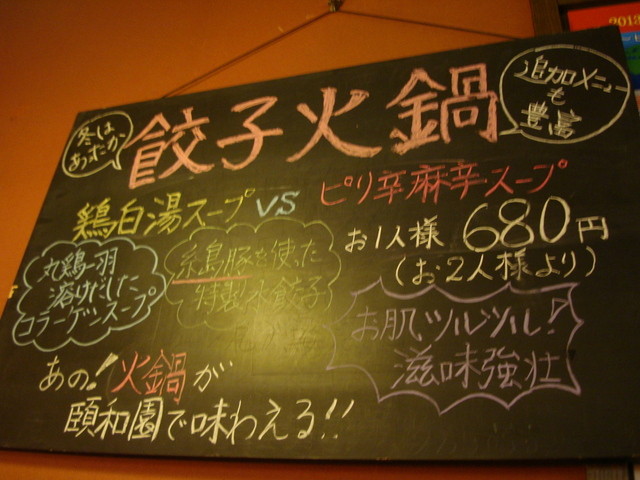 冬は
あったか
餃子火鍋
追加メニュー
も
豊富
鶏白湯スープ VS ピリ辛麻辛スープ
丸鶏一羽
溶けだした
コラーゲンスープ
糸島豚を使った
特製水餃子
お1人様 680円
(お2人様より)
お肌ツルツル!
滋味強壮
あの!火鍋が
頤和園で味わえる!!